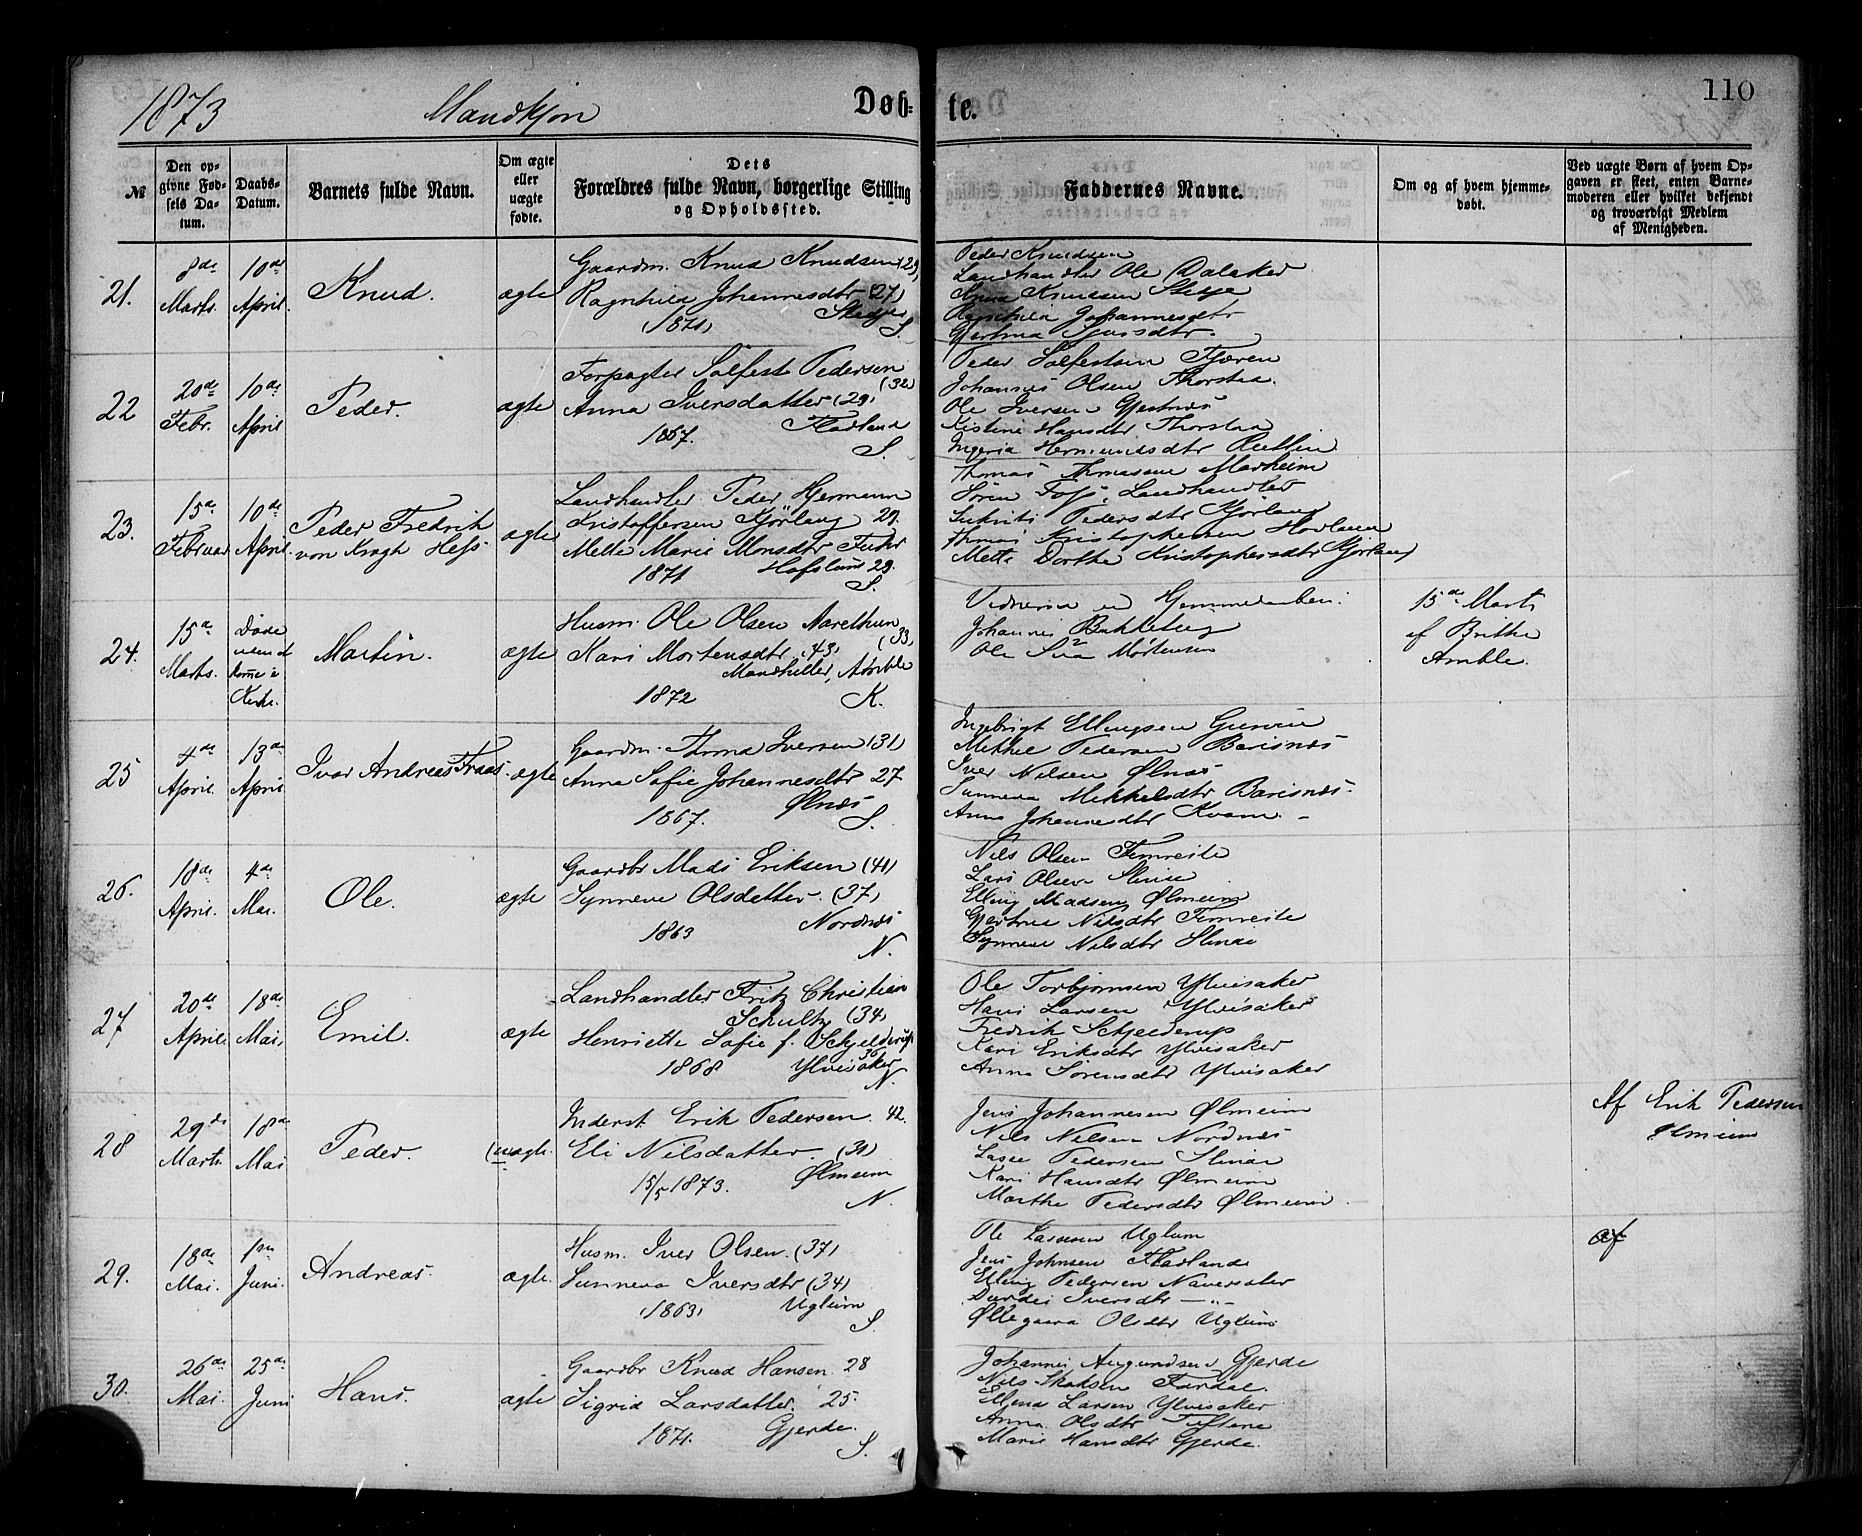 1873 Mandkjøn Døb- te. 110
№
Den opgivne Fødsels Datum.
Daabs-Datum.
Barnets fulde Navn.
Om ægte eller uægte fødte.
Dets Forældres fulde Navn, borgerlige Stilling og Opholdssted.
Faddernes Navne.
Om og af hvem hjemmedøbt.
Ved uægte Børn af hvem Opgaven er skeet, enten Barnemoderen eller hvilket bekjendt og troværdigt Medlem af Menigheden.
21. 8de Marts. 10de April. Knud. ægte
Gaardm. Knud Knudsen (29)
Ragnhild Johannesdtr (27)
1871 Stedje
S.
Peder Knudsen
Landhandler Ole Dalaker
Anna Knudsen Stedje
Ragnhild Johannesdtr
22 20de Febr. 10de April Peder. ægte
Forpagter Solfest Pedersen (32)
Anna Iversdatter (29)
1867. Fladland
S.
Peder Solfestsen Fjæren
Johannes Olsen Thorstad.
Ole Iversen Gjestnæs
Kistine Hansdtr Thorstad
Ingeria Hermundsdtr
23. 15de Februar 10de April. Peder Fredrik von Kragh Hess. ægte
Landhandler Peder Hermann
Kristoffersen Kjörlaug 29.
Mette Marie Monsdtr Fuhr
1871 Hofslund 29.
S.
Thomas Thomasen Marheim
Sören Foss, Landhandler
Pedersdtr Kjörlaug
Thomas Kristophersen Hovland
Mette Dorthe Kristophersdtr Kjörlaug
24. 15de Marts. Døde uden at komme i Kirke. Martin. ægte
Husm. Ole Olsen Aarethun (33)
Kari Mortensdtr (43)
Mandhiller, Amble
1872 K.
Vidnerne ved Hjemmedaaben:
Johannes Bakketeig
Ole Mortensen
15de Marts
af Brithe
Amble.
25 4de April. 13de April Ivar Andreas Fraas. ægte
Gaardm. Thomas Iversen (31)
Anna Sofie Johannesdtr 27
1867. Ølnæs
S.
Ingebrigt Ellingsen
Mikkel Pedersen Barsnæs
Iver Nilsen Ølnæs
Sunneva Mikkelsdtr Barsnæs.
Anna Johannedtr Kvam.
26. 18de April. 4de Mai. Ole. ægte
Gaardbr Mads Eriksen (41)
Synneve Olsdatter. (37)
1863 Nordnæs
N.
Nils Olsen Fimreite
Lars Olsen Slinde
Elling Madsen Ølmeim
Gjertrud Nilsdtr Fimreite
Synneve Nilsdtr Slinde
27 20de April 18de Mai. Emil. ægte
Landhandler Fritz Christian
Schultz (34)
Henriette Sofie f. Schjelderup
36
1868 Ylvisaker
N.
Ole Torbjørnsen Ylvisaker
Hans Larsen Ylvisaker
Fredrik Schjelderup
Kari Eriksdtr Ylvisaker
Anna Sörensdtr Ylvisaker
28 29de Marts. 18de Mai Peder. (uægte.
Inderst Erik Pedersen. 42.
Eli Nilsdatter. (31)
15/5 1873. Ølmeim
N.
Jens Johannesen Ølmeim
Nils Nilsen Nordnæs
Lasse Pedersen Slinde
Kari Hansdtr Ølmeim
Marthe Pedersdtr Ølmeim.
Af Erik Pedersen
Ølmeim
29. 18de Mai. 1ste Juni. Andreas. ægte.
Husm. Iver Olsen. (37)
Sunneva Iversdtr (34)
1863, Uglum
S.
Ole Larsen Uglum
Jens Johnsen Fladland
Elling Pedersen Naversater
Durdei Iversdtr — „ —
Øllegaard Olsdtr Uglum
af
30. 26de Mai. 25de Juni Hans. ægte
Gaardbr Knud Hansen. 28
Sigrid Larsdatter. 25.
1871. Gjerde.
S.
Johannes Augundsen Gjerde
Nils Skaksen Fardal.
Larsen Ylvisaker
Anna Olsdtr
Marie Hansdtr Gjerde.